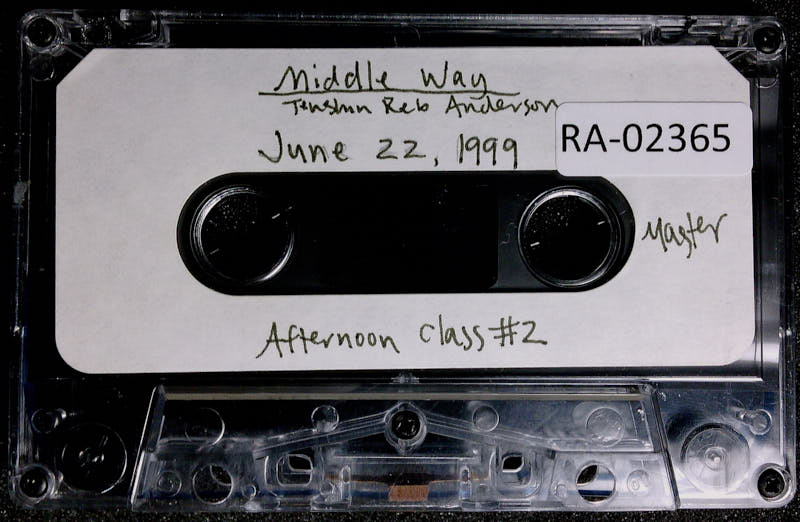 Middle Way
Tenshin Reb Anderson
June 22, 1999
RA-02365
Master
Afternoon Class #2